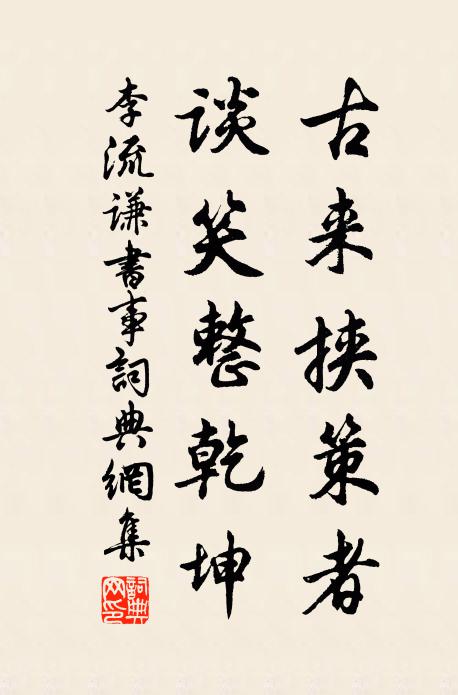 古来挟策者
谈笑整乾坤
李流谦書事詞典網集
詞典网印